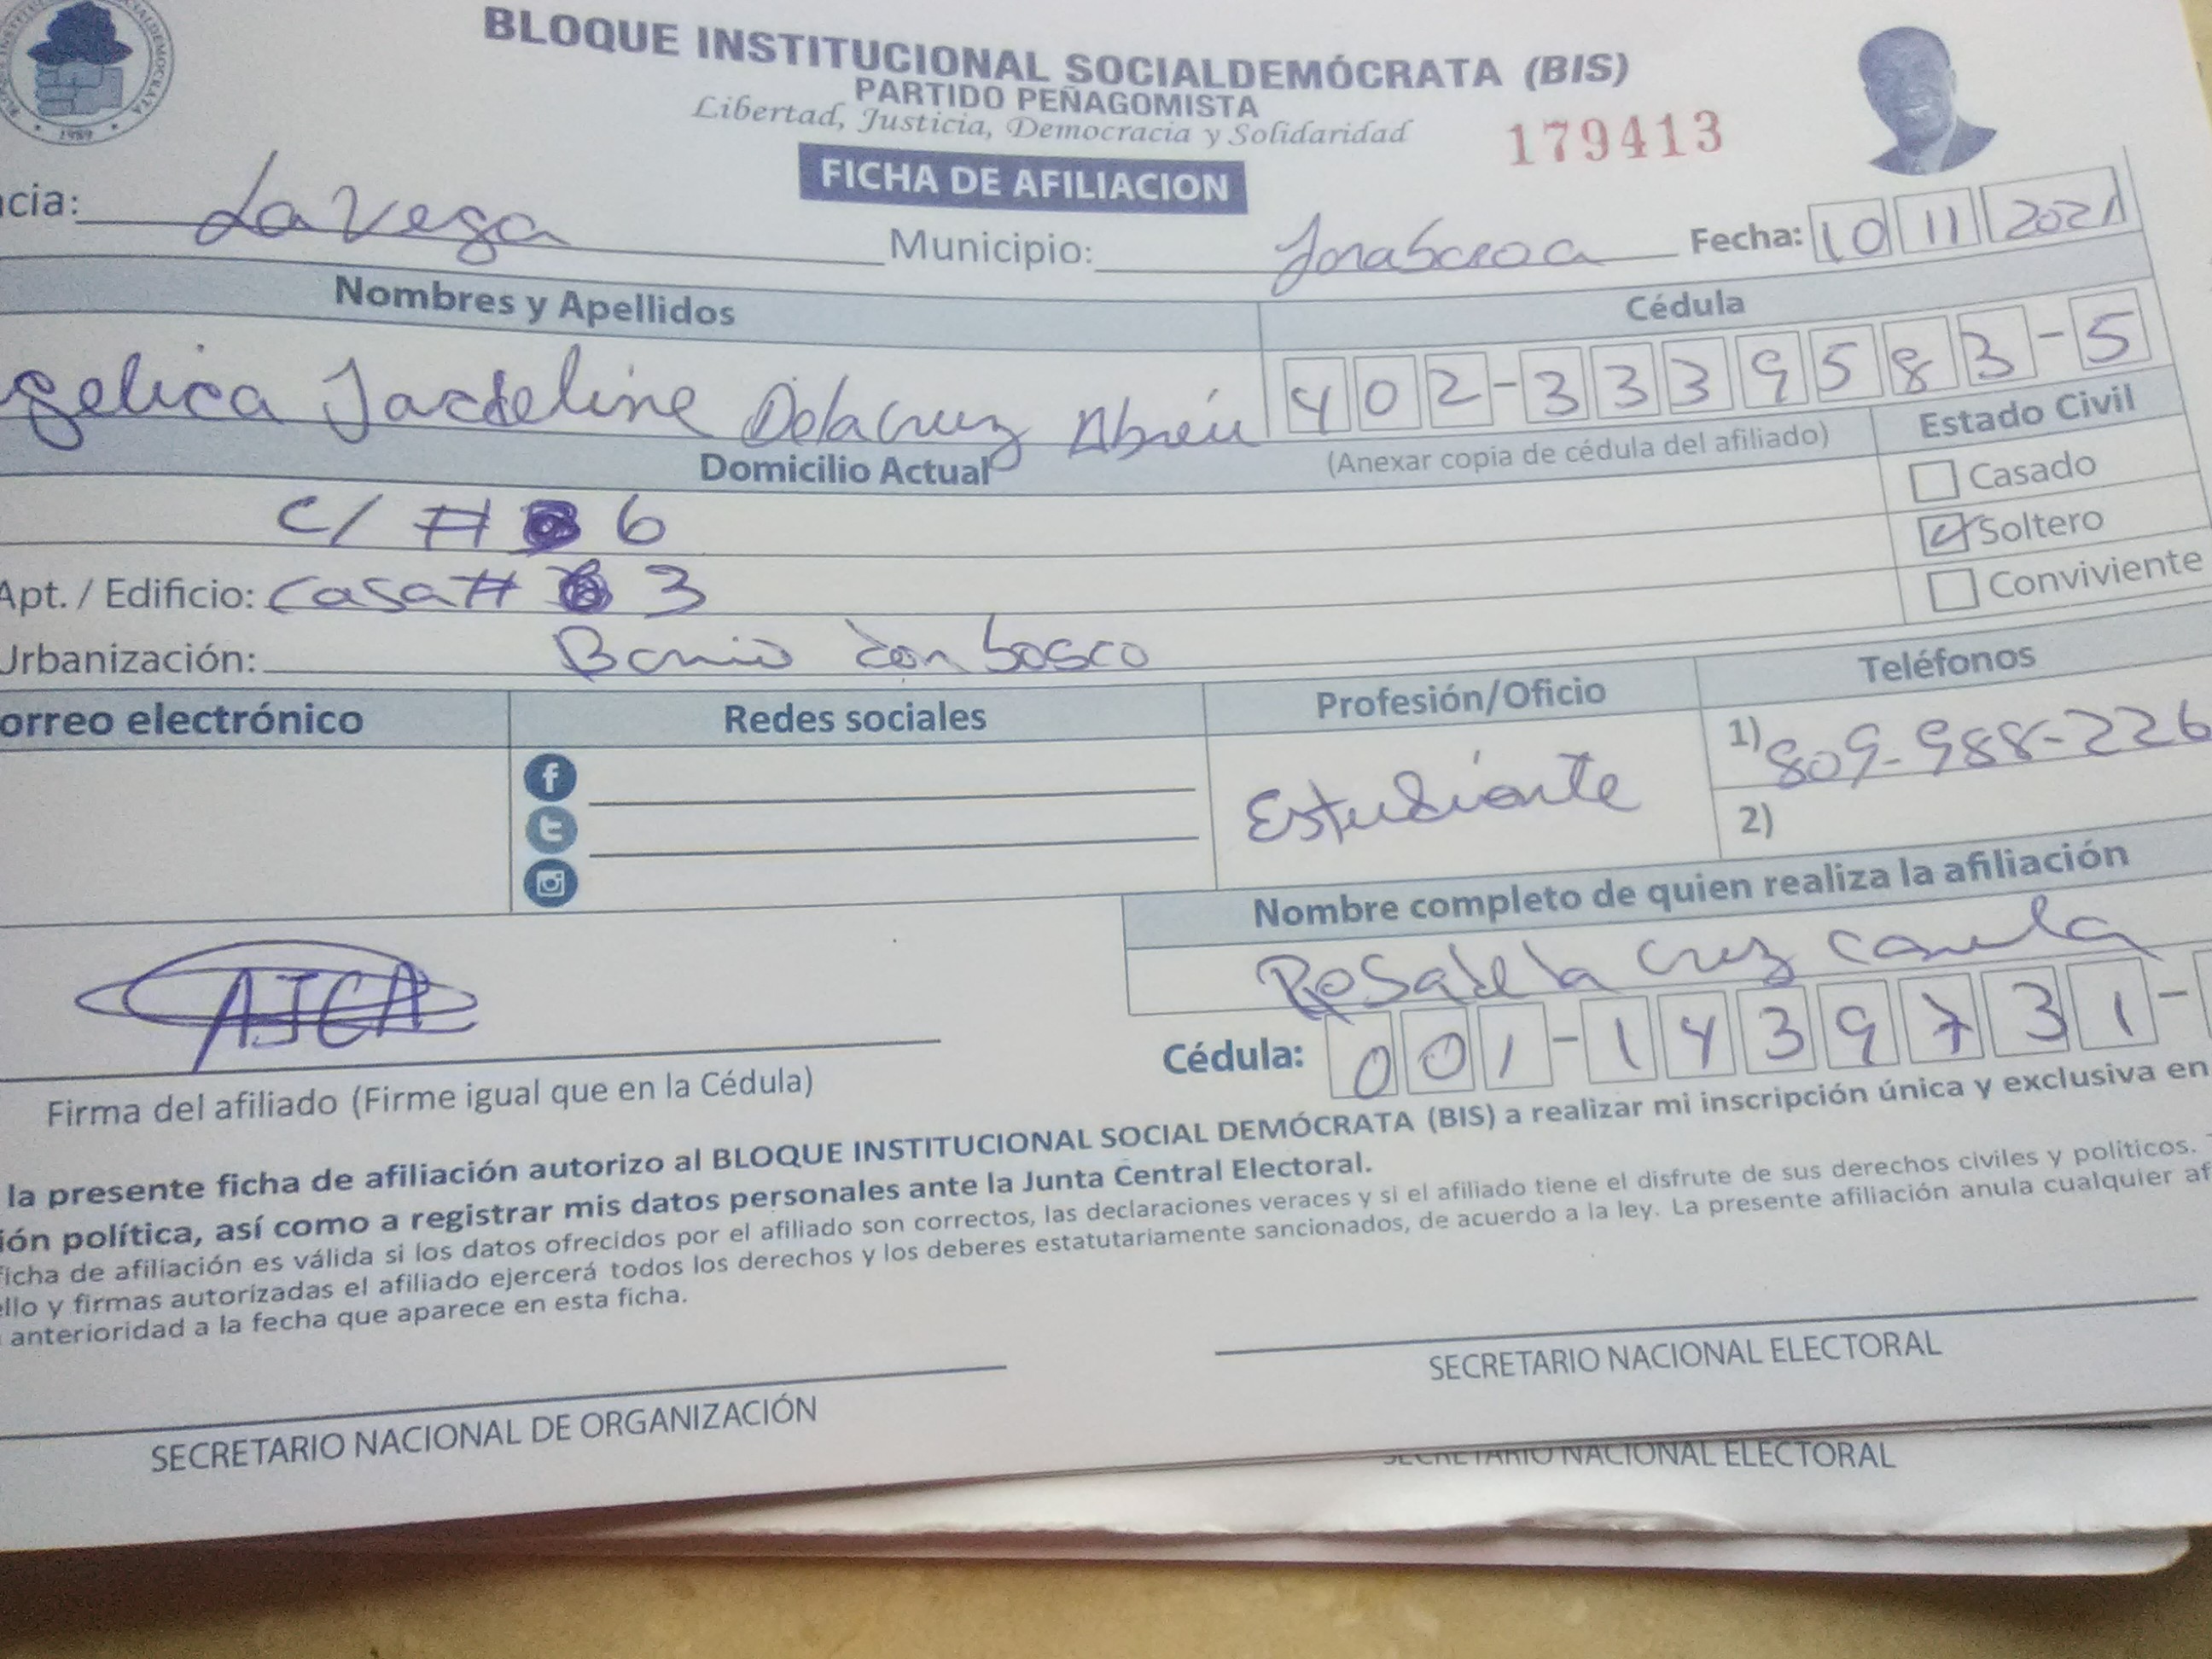 BLOQUE INSTITUCIONAL SOCIALDEMÓCRATA (BIS)
PARTIDO PEÑAGOMISTA
Libertad, Justicia, Democracia y Solidaridad
179413
1989
FICHA DE AFILIACION
cia: La Vega Municipio: Fecha: 10 11 2021
Nombres y Apellidos Cédula
gelica Jacteline Dela Cruz Abreu 402-3339583-5
Domicilio Actual (Anexar copia de cédula del afiliado) Estado Civil
C/ # 6 Casado
Apt. / Edificio: Casa # 3 Soltero
Urbanización: Barrio Don bosco Conviviente
orreo electrónico Redes sociales Profesión/Oficio Teléfonos
Estudiante 1) 809-988-226
2)
Nombre completo de quien realiza la afiliación
AJCA Rosa de la Cruz
Cédula: 001-1439731-
Firma del afiliado (Firme igual que en la Cédula)
la presente ficha de afiliación autorizo al BLOQUE INSTITUCIONAL SOCIAL DEMÓCRATA (BIS) a realizar mi inscripción única y exclusiva en
ión política, así como a registrar mis datos personales ante la Junta Central Electoral.
ficha de afiliación es válida si los datos ofrecidos por el afiliado son correctos, las declaraciones veraces y si el afiliado tiene el disfrute de sus derechos civiles y políticos.
ello y firmas autorizadas el afiliado ejercerá todos los derechos y los deberes estatutariamente sancionados, de acuerdo a la ley. La presente afiliación anula cualquier af
anterioridad a la fecha que aparece en esta ficha.
SECRETARIO NACIONAL DE ORGANIZACIÓN SECRETARIO NACIONAL ELECTORAL
SECRETARIO NACIONAL ELECTORAL